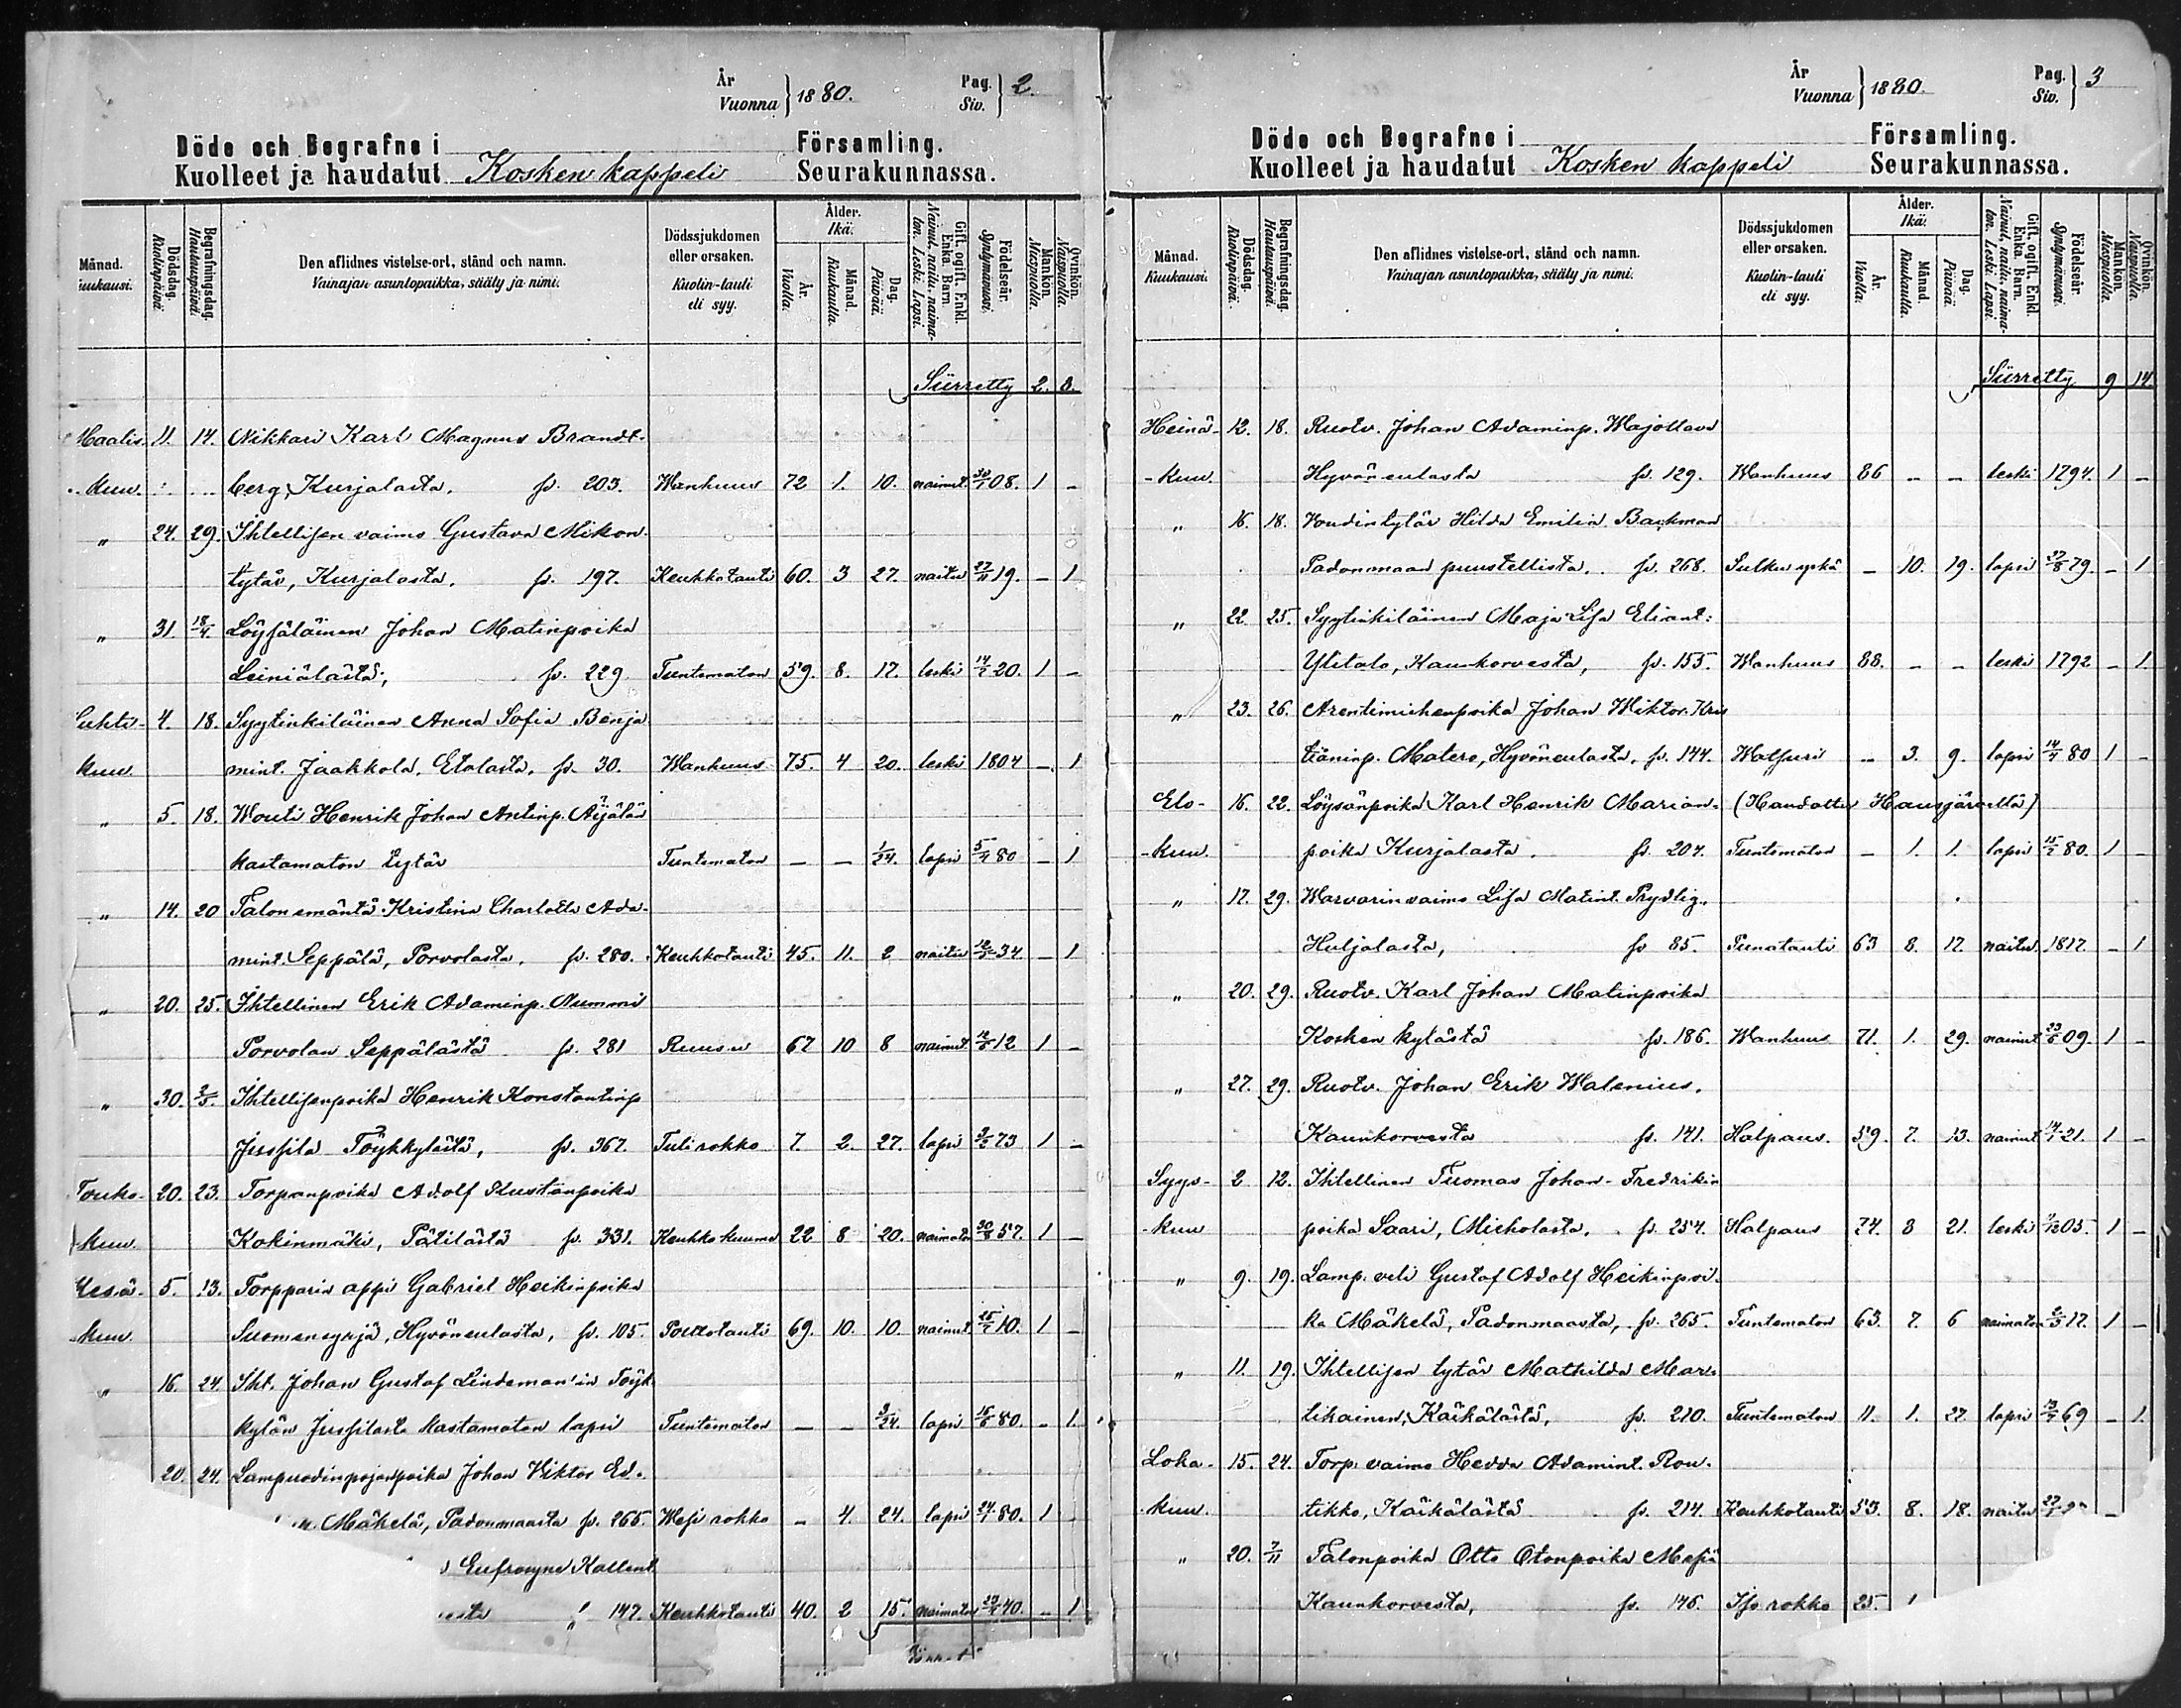 År
Vuonna } 1880.
Pag.
Siv. } 2.
Döde och Begrafne i Församling.
Kuolleet ja haudatut Kosken kappeli Seurakunnassa.
Månad. Kuukausi.
Dödsdag. Kuolinpäivä.
Begrafningsdag. Hautauspäivä.
Den aflidnes vistelse-ort, stånd och namn. Vainajan asuntopaikka, sääty ja nimi.
Dödssjukdomen eller orsaken. Kuolin-tauti eli syy.
Ålder. Ikä.
År. Vuotta.
Månad. Kuukautta.
Dag. Päivää.
Gift, ogift. Enkl. Enka. Barn. Nainut, naitu, naimaton. Leski. Lapsi.
Födelseår. Syntymävuosi.
Mankön. Miespuolta.
Qvinkön. Naispuolta.
Siirretty 2. 3.
Maalis- 11. 14. Nikkari Karl Magnus Brandt-
kuu. berg, Kurjalasta. p. 203. Wanhuus 72 1. 10. nainut 30/1 08. 1 -
" 24. 29. Ihtellisen vaimo Gustava Mikon-
tytär, Kurjalasta. p. 197. Keuhkotauti 60. 3 27. naitu 27/11 19. - 1
" 31 18/4 Löysäläinen Johan Matinpoika
Leiniälästä, p. 229 Tuntematon 59. 8. 17. leski 14/7 20. 1 -
Huhti- 4. 18. Syytinkiläinen Anna Sofia Benja
kuu. mint. Jaakkola, Etolasta, p. 30. Wanhuus 75. 4 20. leski 1804 - 1
" 5. 18. Wouti Henrik Johan Antinp. Äijälän
kastamaton tytär Tuntematon - - 1/24. lapsi 5/4 80 - 1
" 14. 20 Talon emäntä Kristina Charlotta Ada-
mint. Seppälä, Porvolasta. p. 280. Keuhkotauti 45. 11. 2 naitu 12/5 34. - 1
" 20. 25. Ihtellinen Erik Adaminp. Nummi
Porvolan Seppälästä p. 281 Ruusu 67 10 8 nainut 12/6 12 1 -
" 30. 2/5. Ihtellisenpoika Henrik Konstantinp
Jussila Töykkylästä, p. 367. Tulirokko 7. 2. 27. lapsi 3/2 73 1 -
Touko- 20. 23. Torpanpoika Adolf Kustaanpoika
kuu. Kokinmäki, Pätilästä p. 331. Keuhkokuume 22 8 20. naimaton 30/8 57. 1 -
Kesä- 5. 13. Torpparin appi Gabriel Heikinpoika
kuu. Suomensyrjä, Hyvöneulasta, p. 105. Polttotauti 69. 10. 10. nainut 25/7 10. 1 -
" 16. 24. Iht. Johan Gustaf Lindeman'in Töyk-
kylän Jussilasta kastamaton lapsi Tuntematon - - 3/24. lapsi 16/6 80. - 1.
20. 24. Lampuodinpojanpoika Johan Viktor Ed.
Mäkelä, Padonmaasta p. 265. Wesirokko - 4. 24. lapsi 24/1 80. 1
Eufrosyne Kallent.
" 147. Keuhkotauti 40. 2 15. naimaton 40. - 1
År
Vuonna } 1880.
Pag.
Siv. } 3
Döde och Begrafne i Församling.
Kuolleet ja haudatut Kosken kappeli Seurakunnassa.
Månad. Kuukausi.
Dödsdag. Kuolinpäivä.
Begrafningsdag. Hautauspäivä.
Den aflidnes vistelse-ort, stånd och namn. Vainajan asuntopaikka, sääty ja nimi.
Dödssjukdomen eller orsaken. Kuolin-tauti eli syy.
Ålder. Ikä.
År. Vuotta.
Månad. Kuukautta.
Dag. Päivää.
Gift, ogift. Enkl. Enka. Barn. Nainut, naitu, naimaton. Leski. Lapsi.
Födelseår. Syntymävuosi.
Mankön. Miespuolta.
Qvinkön. Naispuolta.
Siirretty 9 14.
Heinä- 12. 18. Ruotv. Johan Adaminp. Wajottava
-kuu. Hyvöneulasta p. 129. Wanhuus 86 - - leski 1794. 1 -
" 16. 18. Voudin tytär Hilda Emilia Backman
Padonmaan puustellista. p. 268. Sulku yskä - 10. 19. lapsi 27/8 79. - 1
" 22. 25. Syytinkiläinen Maja Lisa Eliant:
Ylitalo, Kaunkorvesta, p. 155. Wanhuus 88. - - leski 1792 - 1.
" 23. 26. Arentimiehenpoika Johan Wiktor Kris
tiäninp. Matero, Hyvöneulasta, p. 144. Watsuri - 3. 9. lapsi 14/4 80 1 -
Elo- 16. 22. Löysänpoika Karl Henrik Marian- (Haudattu Hausjärvellä)
-kuu. poika Kurjalasta. p. 204. Tuntematon - 1. 1. lapsi 15/7 80. 1
" 17. 29. Warvarin vaimo Lisa Matint. Prydlig,
Huljalasta, p. 85. Punatauti 63 8. 17. naitu. 1817. - 1
" 20. 29. Ruotv. Karl Johan Matinpoika
Kosken kylästä p. 186. Wanhuus 71. 1. 29. nainut 23/6 09. 1 -
" 27. 29. Ruotv. Johan Erik Walenius,
Kaunkorvesta p. 141. Halpaus. 59. 7. 13. nainut 14/1 21. 1 -
Syys- 2 12. Ihtellinen Tuomas Johan-Fredrikin
-kuu poika Saari, Micholasta, p. 254. Halpaus 74. 8 21. leski 05. 1 -
" 9. 19. Lamp. veli Gustaf Adolf Heikinpoi-
ka Mäkelä, Padonmaasta, p. 265. Tuntematon 63. 7. 6 naimaton 17. 1 -
" 11. 19. Ihtellisen tytär Mathilda Mar-
tikainen, Käikälästä, p. 210. Tuntematon 11. 1. 27 lapsi 69 - 1.
Loka- 15. 24. Torp. vaimo Hedda Adamint. Rou-
-kuu. tikko, Käikälästä p. 214. Keuhkotauti 53. 8. 18. naitu -
" 20. 7/11 Talonpoika Otto Otonpoika
Kaunkorvesta, p. 146. Iso rokko 25. 1